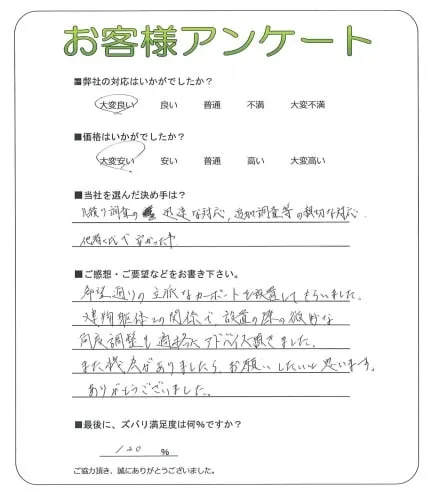 お客様アンケート
■弊社の対応はいかがでしたか？
大変良い 良い 普通 不満 大変不満
■価格はいかがでしたか？
大変安い 安い 普通 高い 大変高い
■当社を選んだ決め手は？
見積り調査の 迅速な対応、追加調査等の親切な対応.
他者くらべ安かった事
■ご感想・ご要望などをお書き下さい。
希望通りの立派なカーポートを設置してもらいました。
建物躯体との関係で、設置の際の微妙な
角度調整も適切にアドバイス頂きました。
また機会がありましたら、お願いしたいと思います。
ありがとうございました。
■最後に、ズバリ満足度は何％ですか？
120 ％
ご協力頂き、誠にありがとうございました。